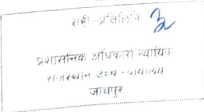 सही-प्रतिलिपि
प्रशासनिक अधिकारी न्यायिक
राजस्थान उच्च न्यायालय
जोधपुर